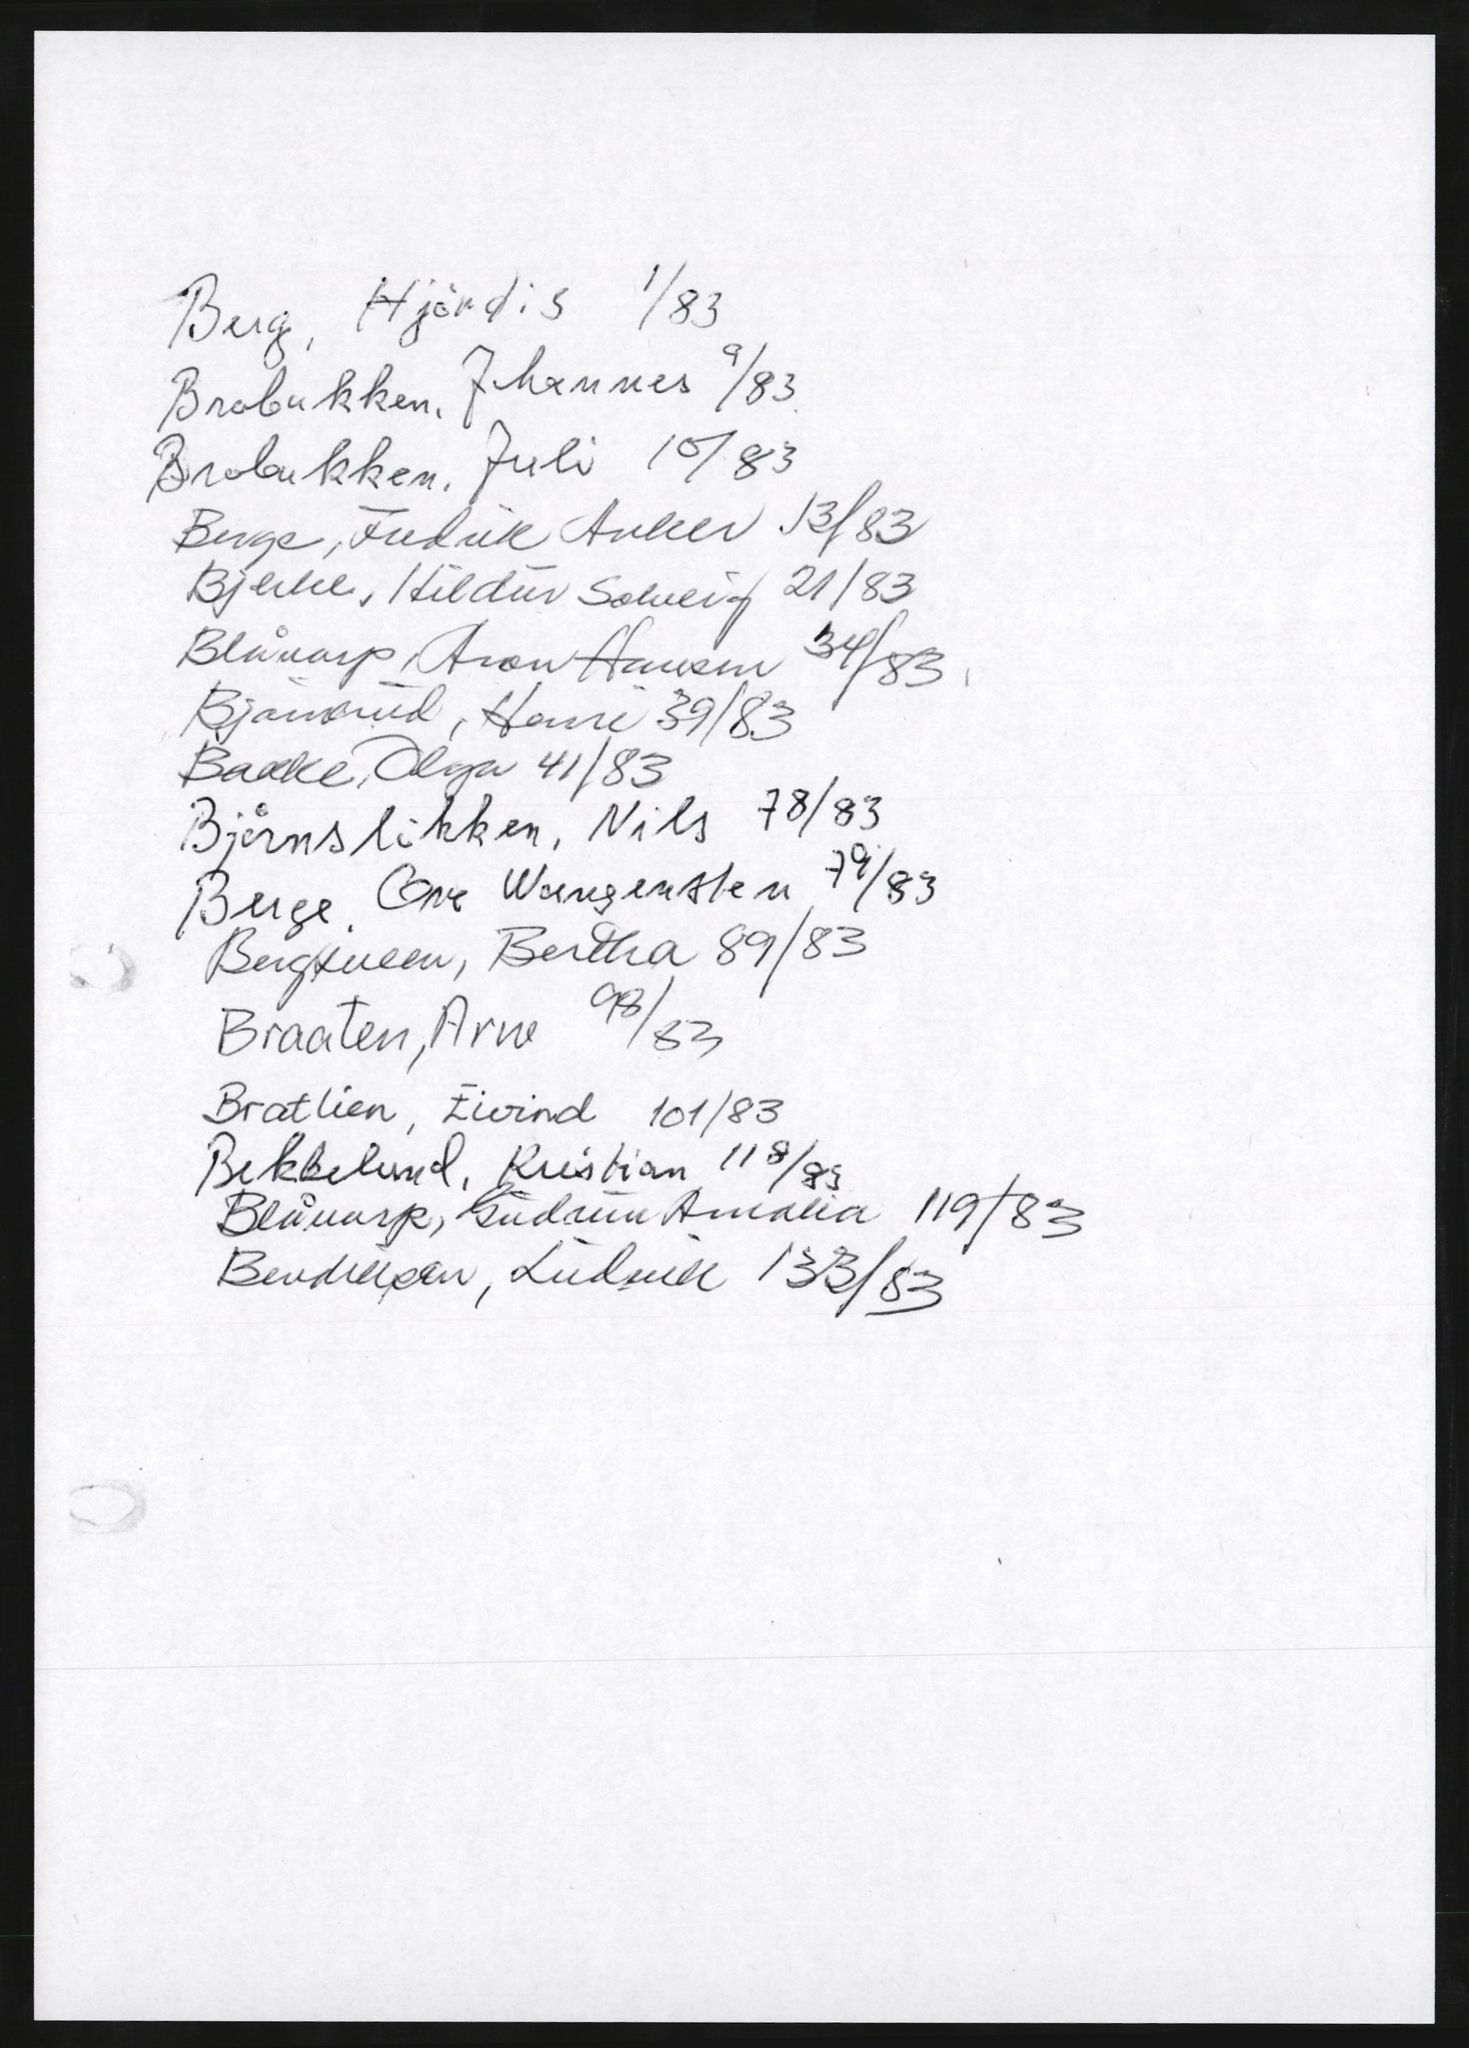 Berg, Hjördis 1/83
Brobakken, Johannes 9/83
Brobakken, Juli 10/83
Berge, Fredrik Anker 13/83
Bjerke, Hildur Solveig 21/83
Blåvarp, Aron Hansen 34/83
Bjørnerud, Henri 39/83
Bakke, Olga 41/83
Björnslikken, Nils 78/83
Berge, Ove Wangensten 79/83
Bertha 89/83
Braaten, Arne 98/83
Bratlien, Eivind 101/83
Bekkelund, Kristian 118/83
Blåvarp, Gudrun Amalia 119/83
Bendiksen, Ludvik 133/83